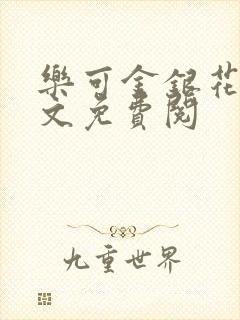 樂可金銀花
文免費閱
九重世界